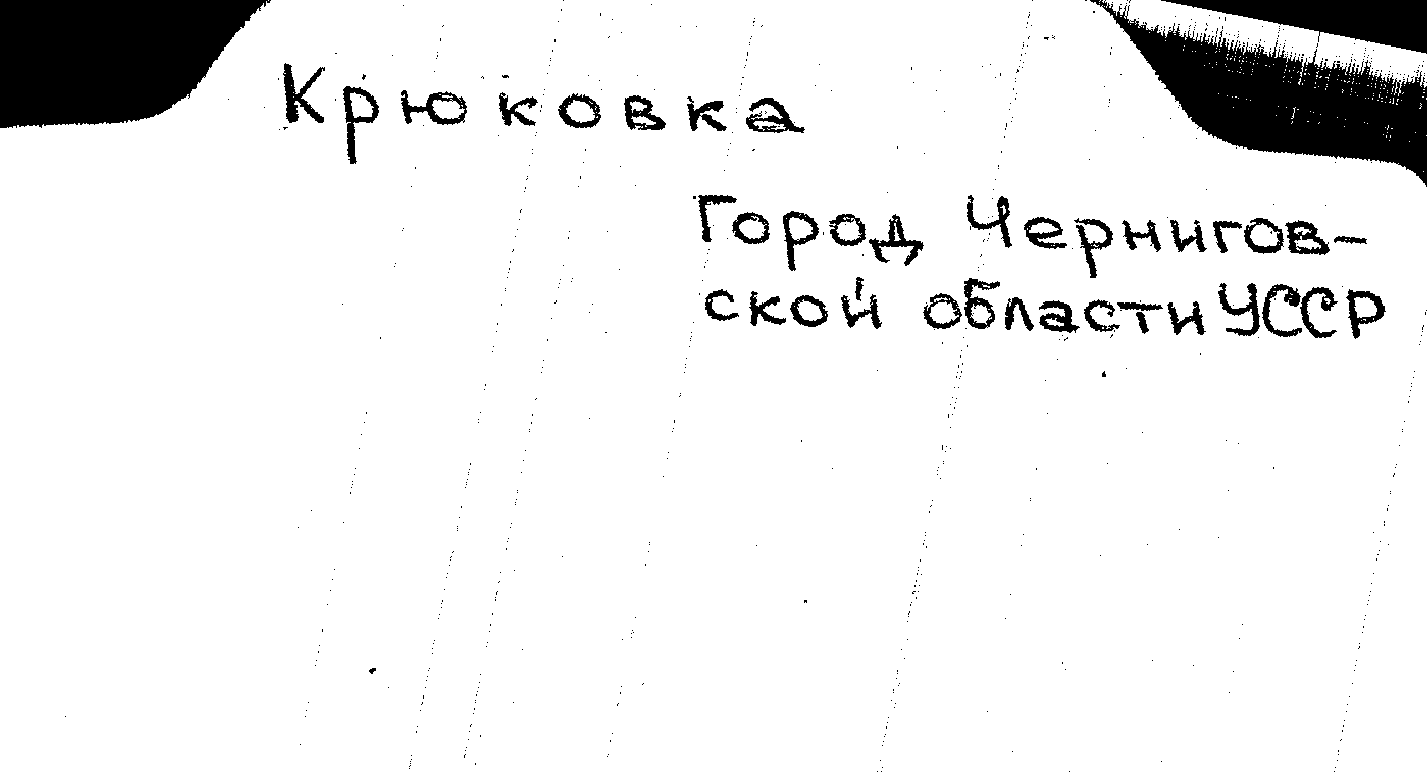 Крюковка
Город Чернигов-
ской области УССР